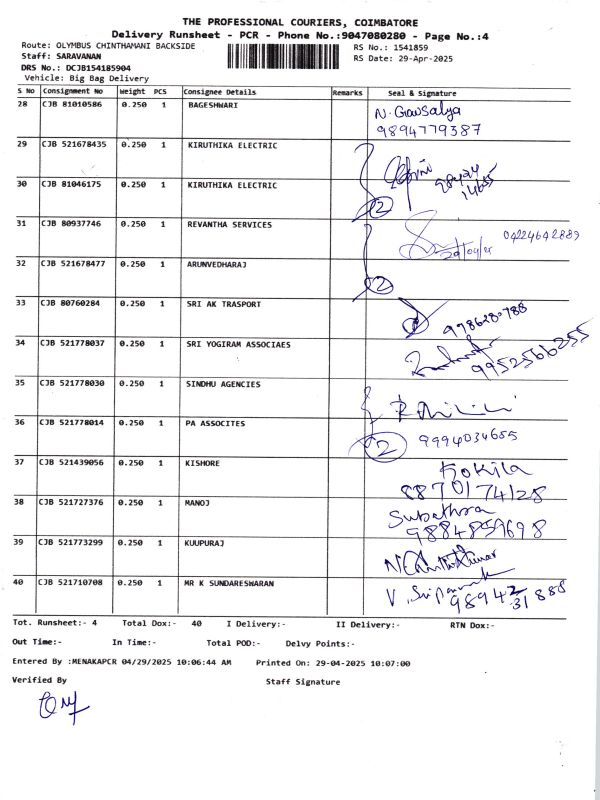 THE PROFESSIONAL COURIERS, COIMBATORE
Delivery Runsheet - PCR - Phone No.:9047080280 - Page No.:4
Route: OLYMBUS CHINTHAMANI BACKSIDE RS No.: 1541859
Staff: SARAVANAN RS Date: 29-Apr-2025
DRS No.: DCJB154185904
Vehicle: Big Bag Delivery
S No Consignment No Weight PCS Consignee Details Remarks Seal & Signature
28 CJB 81010586 0.250 1 BAGESHWARI N. Gowsalya
9894779387
29 CJB 521678435 0.250 1 KIRUTHIKA ELECTRIC
30 CJB 81046175 0.250 1 KIRUTHIKA ELECTRIC 98424
14655
2
31 CJB 80937746 0.250 1 REVANTHA SERVICES 04224642889
32 CJB 521678477 0.250 1 ARUNVEDHARAJ
2
33 CJB 80760284 0.250 1 SRI AK TRASPORT
34 CJB 521778037 0.250 1 SRI YOGIRAM ASSOCIAES 9952566255
35 CJB 521778030 0.250 1 SINDHU AGENCIES
36 CJB 521778014 0.250 1 PA ASSOCITES 2 9994034655
37 CJB 521439056 0.250 1 KISHORE Kokila
8870174128
38 CJB 521727376 0.250 1 MANOJ Subathra
9884859698
39 CJB 521773299 0.250 1 KUUPURAJ
40 CJB 521710708 0.250 1 MR K SUNDARESWARAN 98942
31888
Tot. Runsheet:- 4 Total Dox:- 40 I Delivery:- II Delivery:- RTN Dox:-
Out Time:- In Time:- Total POD:- Delvy Points:-
Entered By :MENAKAPCR 04/29/2025 10:06:44 AM Printed On: 29-04-2025 10:07:00
Verified By Staff Signature